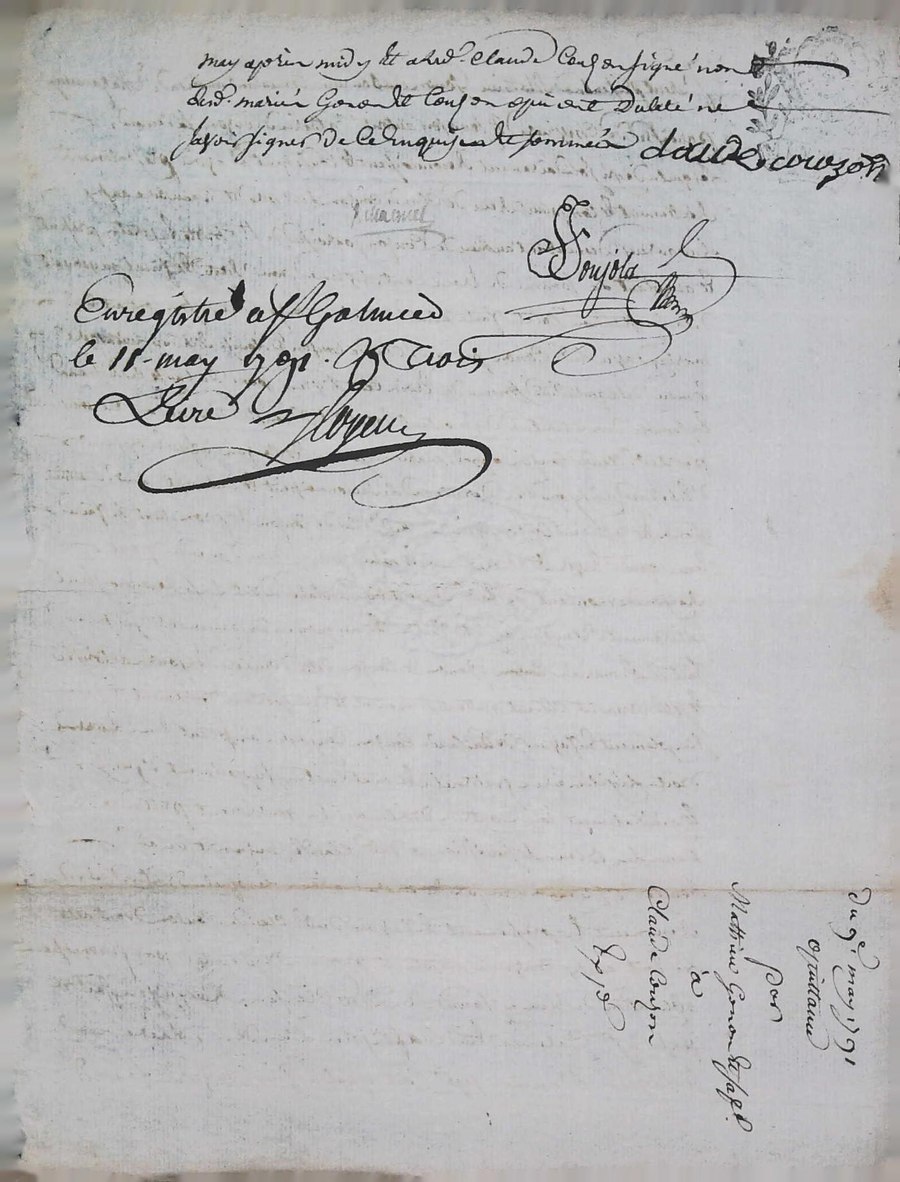 may après midy et a led. Claude Couzon signé non
led. mariés Gonon et Couzon qui ont déclaré ne
savoir signer de ce enquis et sommés Claude couzon
Soujola
Enregistré a St Galmier
le 18 may 1791. R trois
Livre
du 9e may 1791
quittance
par
Mathieu Gonon et sa f.
à
Claude Couzon
Exp d